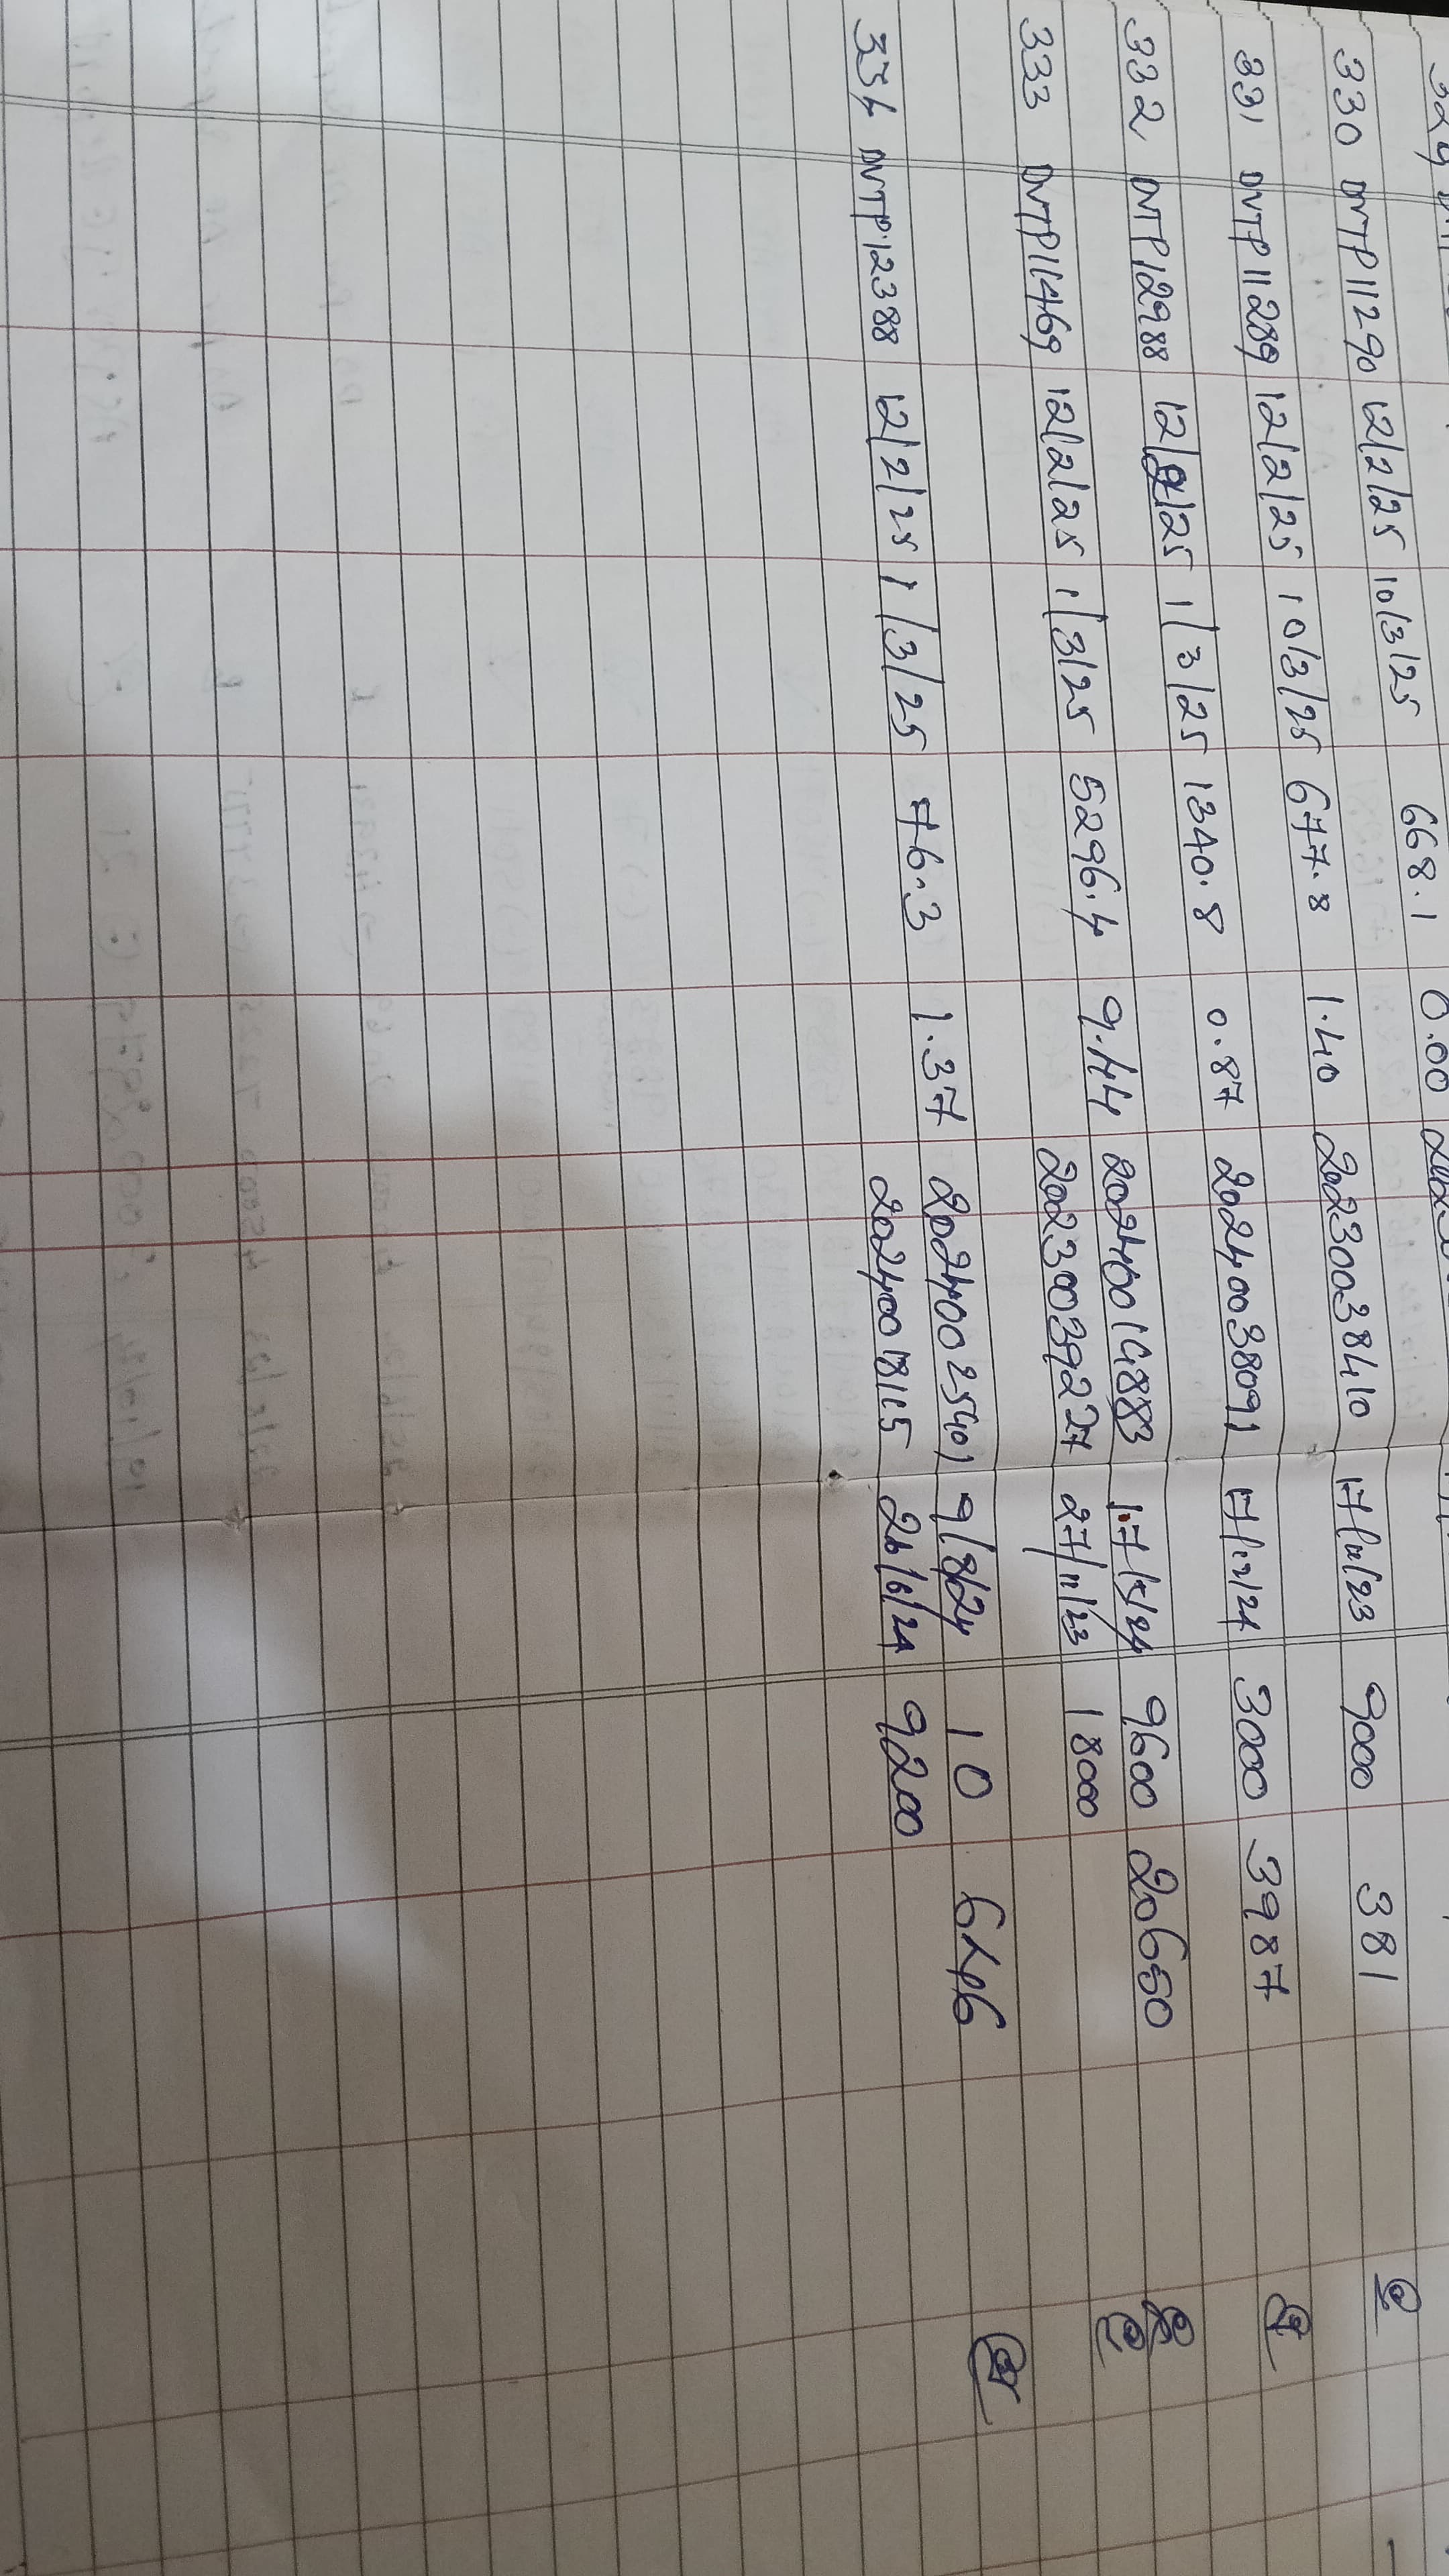 330 DVTP11290 12/2/25 10/3/25 668.1 0.00
331 DVTP11289 12/2/25 10/3/25 677.8 1.40 20230038410 17/12/23 9000 381
332 DVTP12988 12/2/25 1/3/25 1340.8 0.87 20240038091 17/12/24 3000 3987
333 DVTP11469 12/2/25 1/3/25 5296.4 9.44 20240014883 17/5/24 9600 20650
20230039227 27/11/23 18000
334 DVTP12388 12/2/25 1/3/25 76.3 1.37 202400025401 9/8/24 10 6446
202400018115 26/6/24 9200